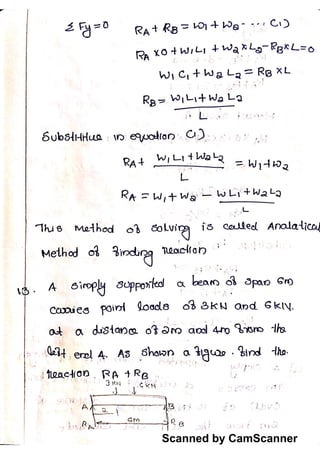 Σ Fy = 0    RA + RB = W1 + W2 - ... C1)
RA x0 + W1 L1 + W2 x L2 - RB x L = 0
W1 C1 + W2 L2 = RB x L
RB = W1 L1 + W2 L2
L
Substitue in equation C1)
RA + W1 L1 + W2 L2 = W1 + W2
L
RA = W1 + W2 - W L1 + W2 L2
L
This method of solving is called Analatical
Method of finding reaction
A simply supported a beam of span 6m
carries point loads of 3KN and 6KN.
at a distance of 2m and 4m from the
left end A. As shown a figure. find the
reaction RA + RB
3KN 6KN
A B
2
RA 6m RB
Scanned by CamScanner